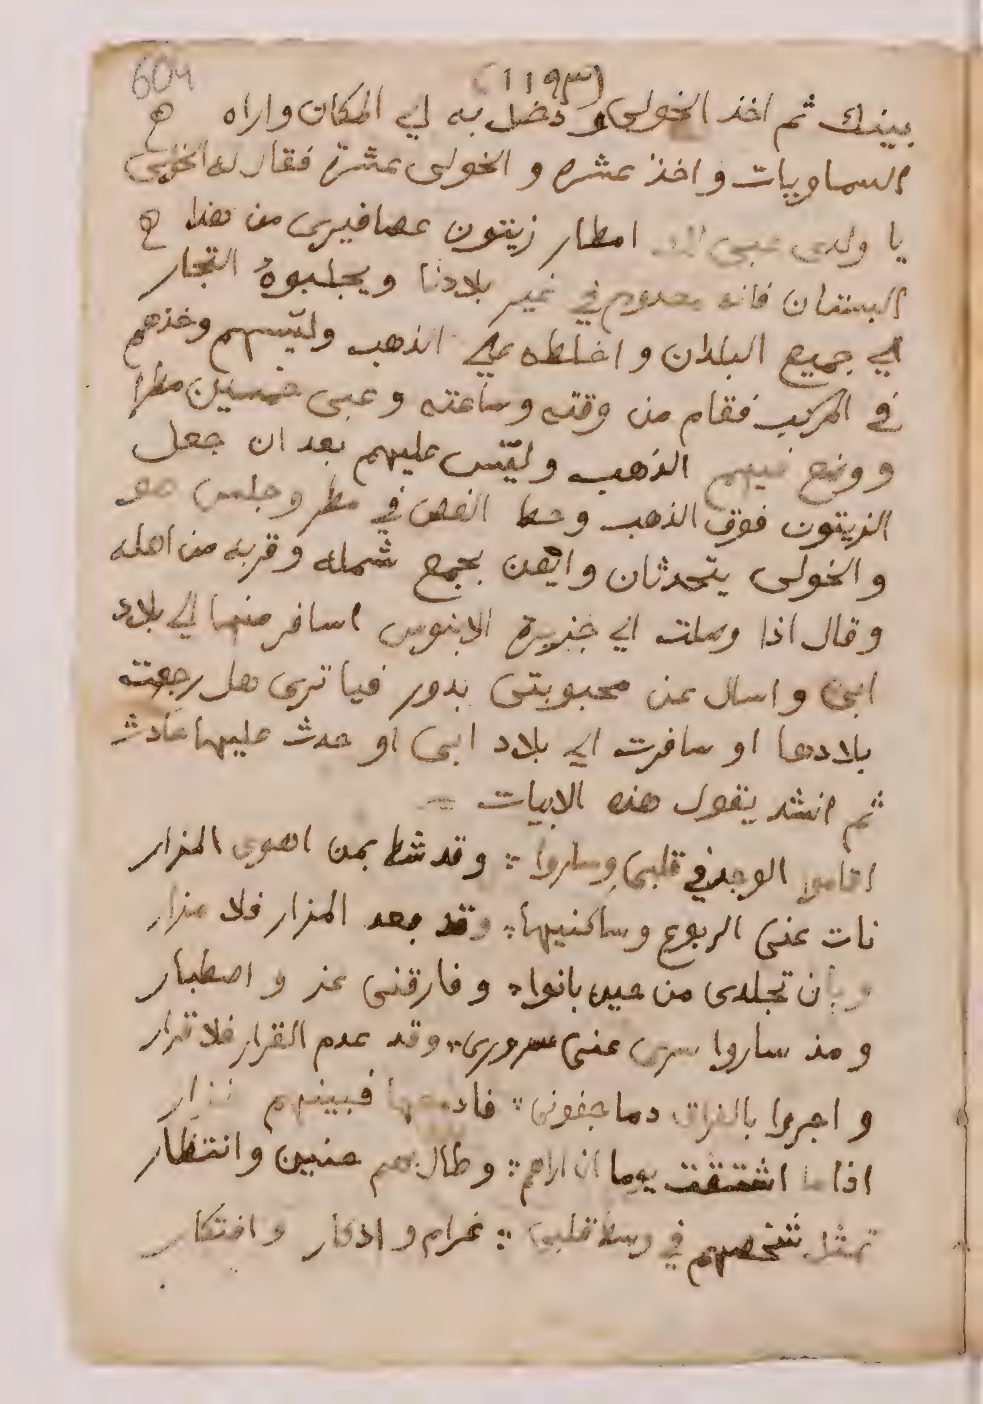 604
(١١٩٣)
بينك ثم اخذ الخولى ودخل به الي المكان واراه
السماويات واخذ عشره و الخولى عشرة فقال له الخولى
يا ولدى عبى لك امطار زيتون عصافيرى من هذا
البستان فانه معدوم في غير بلادنا ويجلبوه التجار
الي جميع البلدان و اخلطه علي الذهب وليسهم وخذهم
في المركب فقام من وقته وساعته وعبى خمسين مطرا
ووضع فيهم الذهب وليس عليهم بعد ان جعل
الزيتون فوق الذهب وحط الفص في مطر وجلس هو
والخولى يتحدثان وايقن بجمع شمله وقربه من اهله
وقال اذا وصلت الي جزيرة الابنوس اسافر منها الي بلاد
ابى واسال عن محبوبتى بدور فيا ترى هل رجعت
بلادها او سافرت الي بلاد ابى او حدث عليها حادث
ثم انشد يقول هذه الابيات
اقاموا الوجد في قلبى وساروا ؞ وقد شط بمن اهوى المزار
نات عنى الربوع وساكنيها ؞ وقد بعد المزار فلا مزار
وبان تجلدى من حين بانوا ؞ وفارقنى عز و اصطبار
ومذ ساروا سرى عنى سرورى ؞ وقد عدم القرار فلا قرار
و اجروا بالفراق دما جفونى ؞ فبينهم
اذا ما اشتقت يوما ان اراهم ؞ وطال بهم حنين وانتظار
تمثل شخصهم في وسط قلبى ؞ غرام و ادكار و افتكار